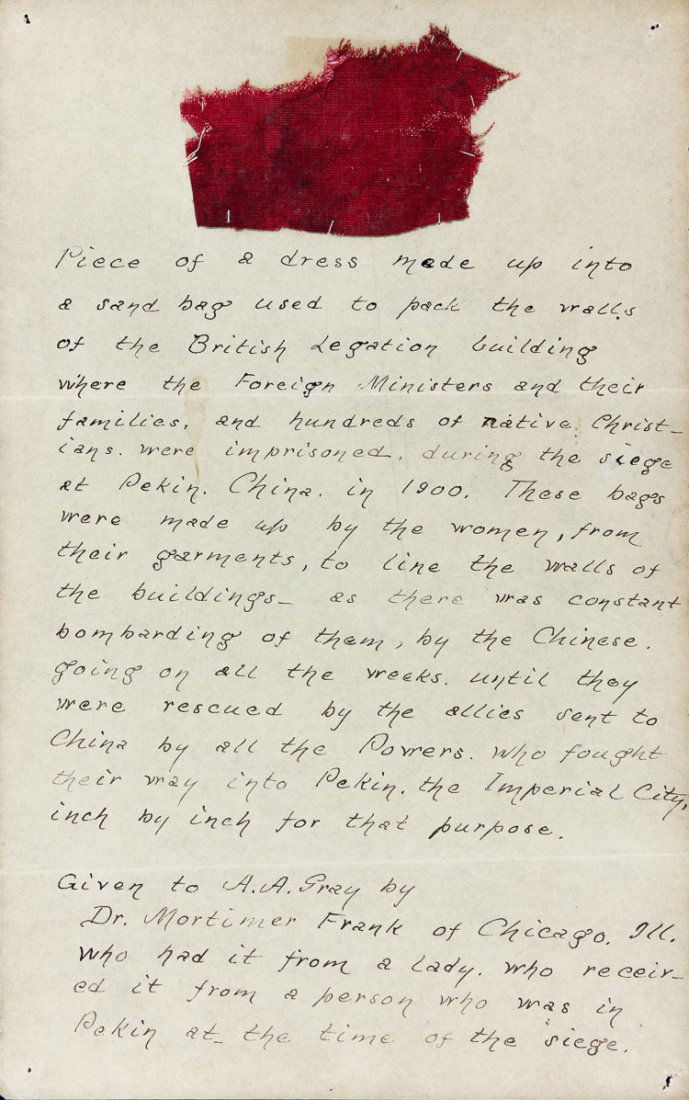 Piece of a dress made up into
a sand bag used to pack the walls
of the British Legation building
where the Foreign Ministers and their
families, and hundreds of native Christ-
ians. were imprisoned. during the siege
at Pekin. China. in 1900. These bags
were made up by the women, from
their garments, to line the walls of
the buildings- as there was constant
bombarding of them, by the Chinese.
going on all the weeks. until they
were rescued by the allies sent to
China by all the Powers. who fought
their way into Pekin. the Imperial City,
inch by inch for that purpose.
Given to A.A. Gray by
Dr. Mortimer Frank of Chicago. Ill.
who had it from a lady. who receiv-
ed it from a person who was in
Pekin at the time of the siege.